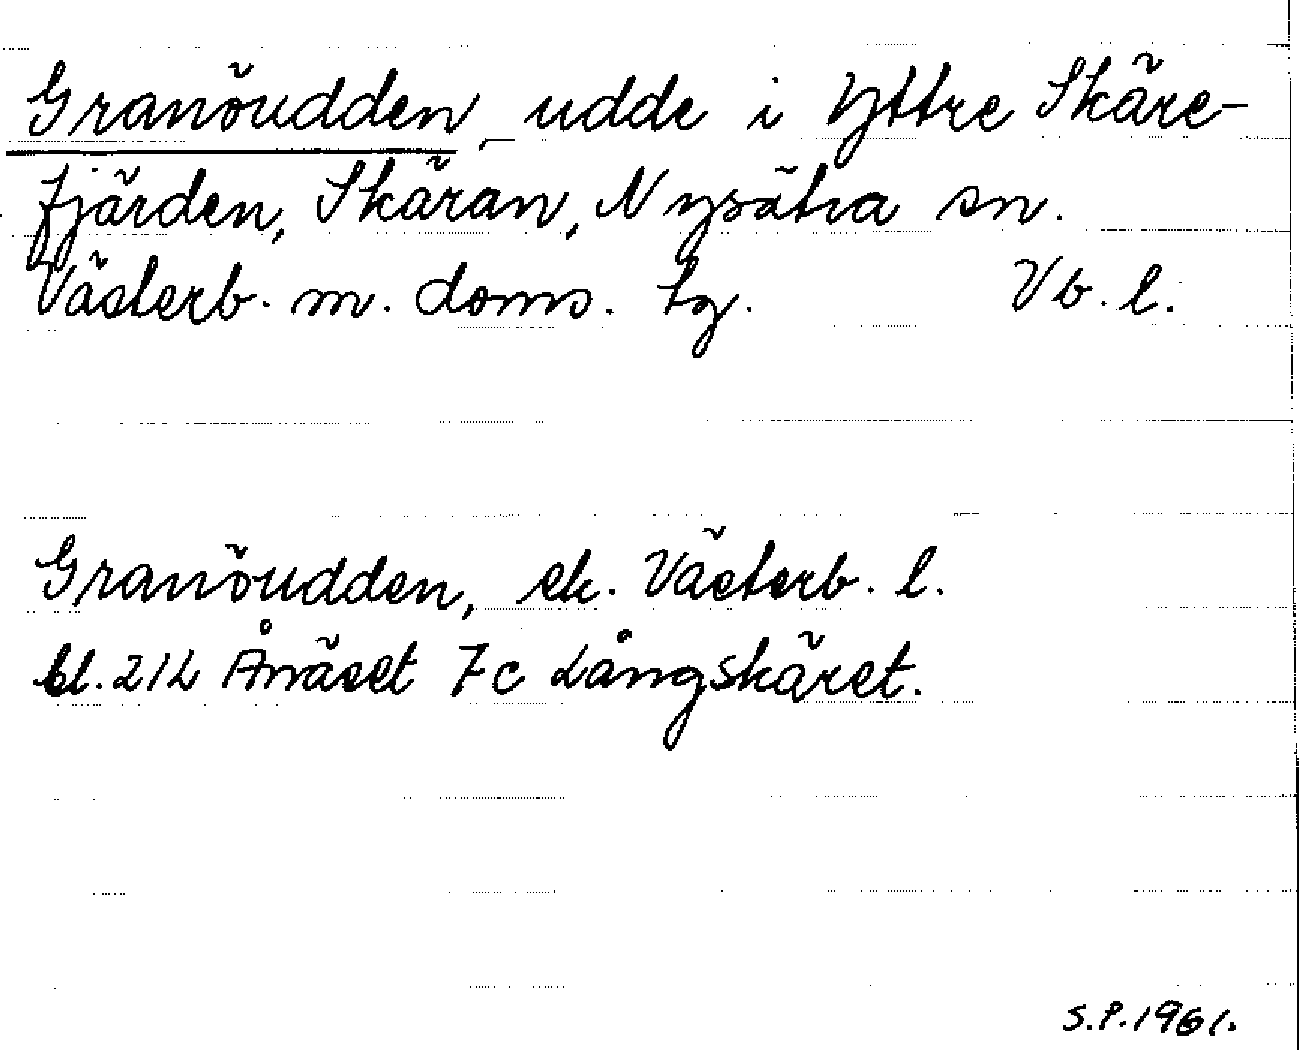 Granöudden, udde i Yttre Skäre-
fjärden, Skäran, Nysätra sn.
Västerb. m. doms. tg. Vb. l.
Granöudden, ek. Västerb. l.
bl. 21L Ånäset 7c Långskäret.
S.P. 1961.